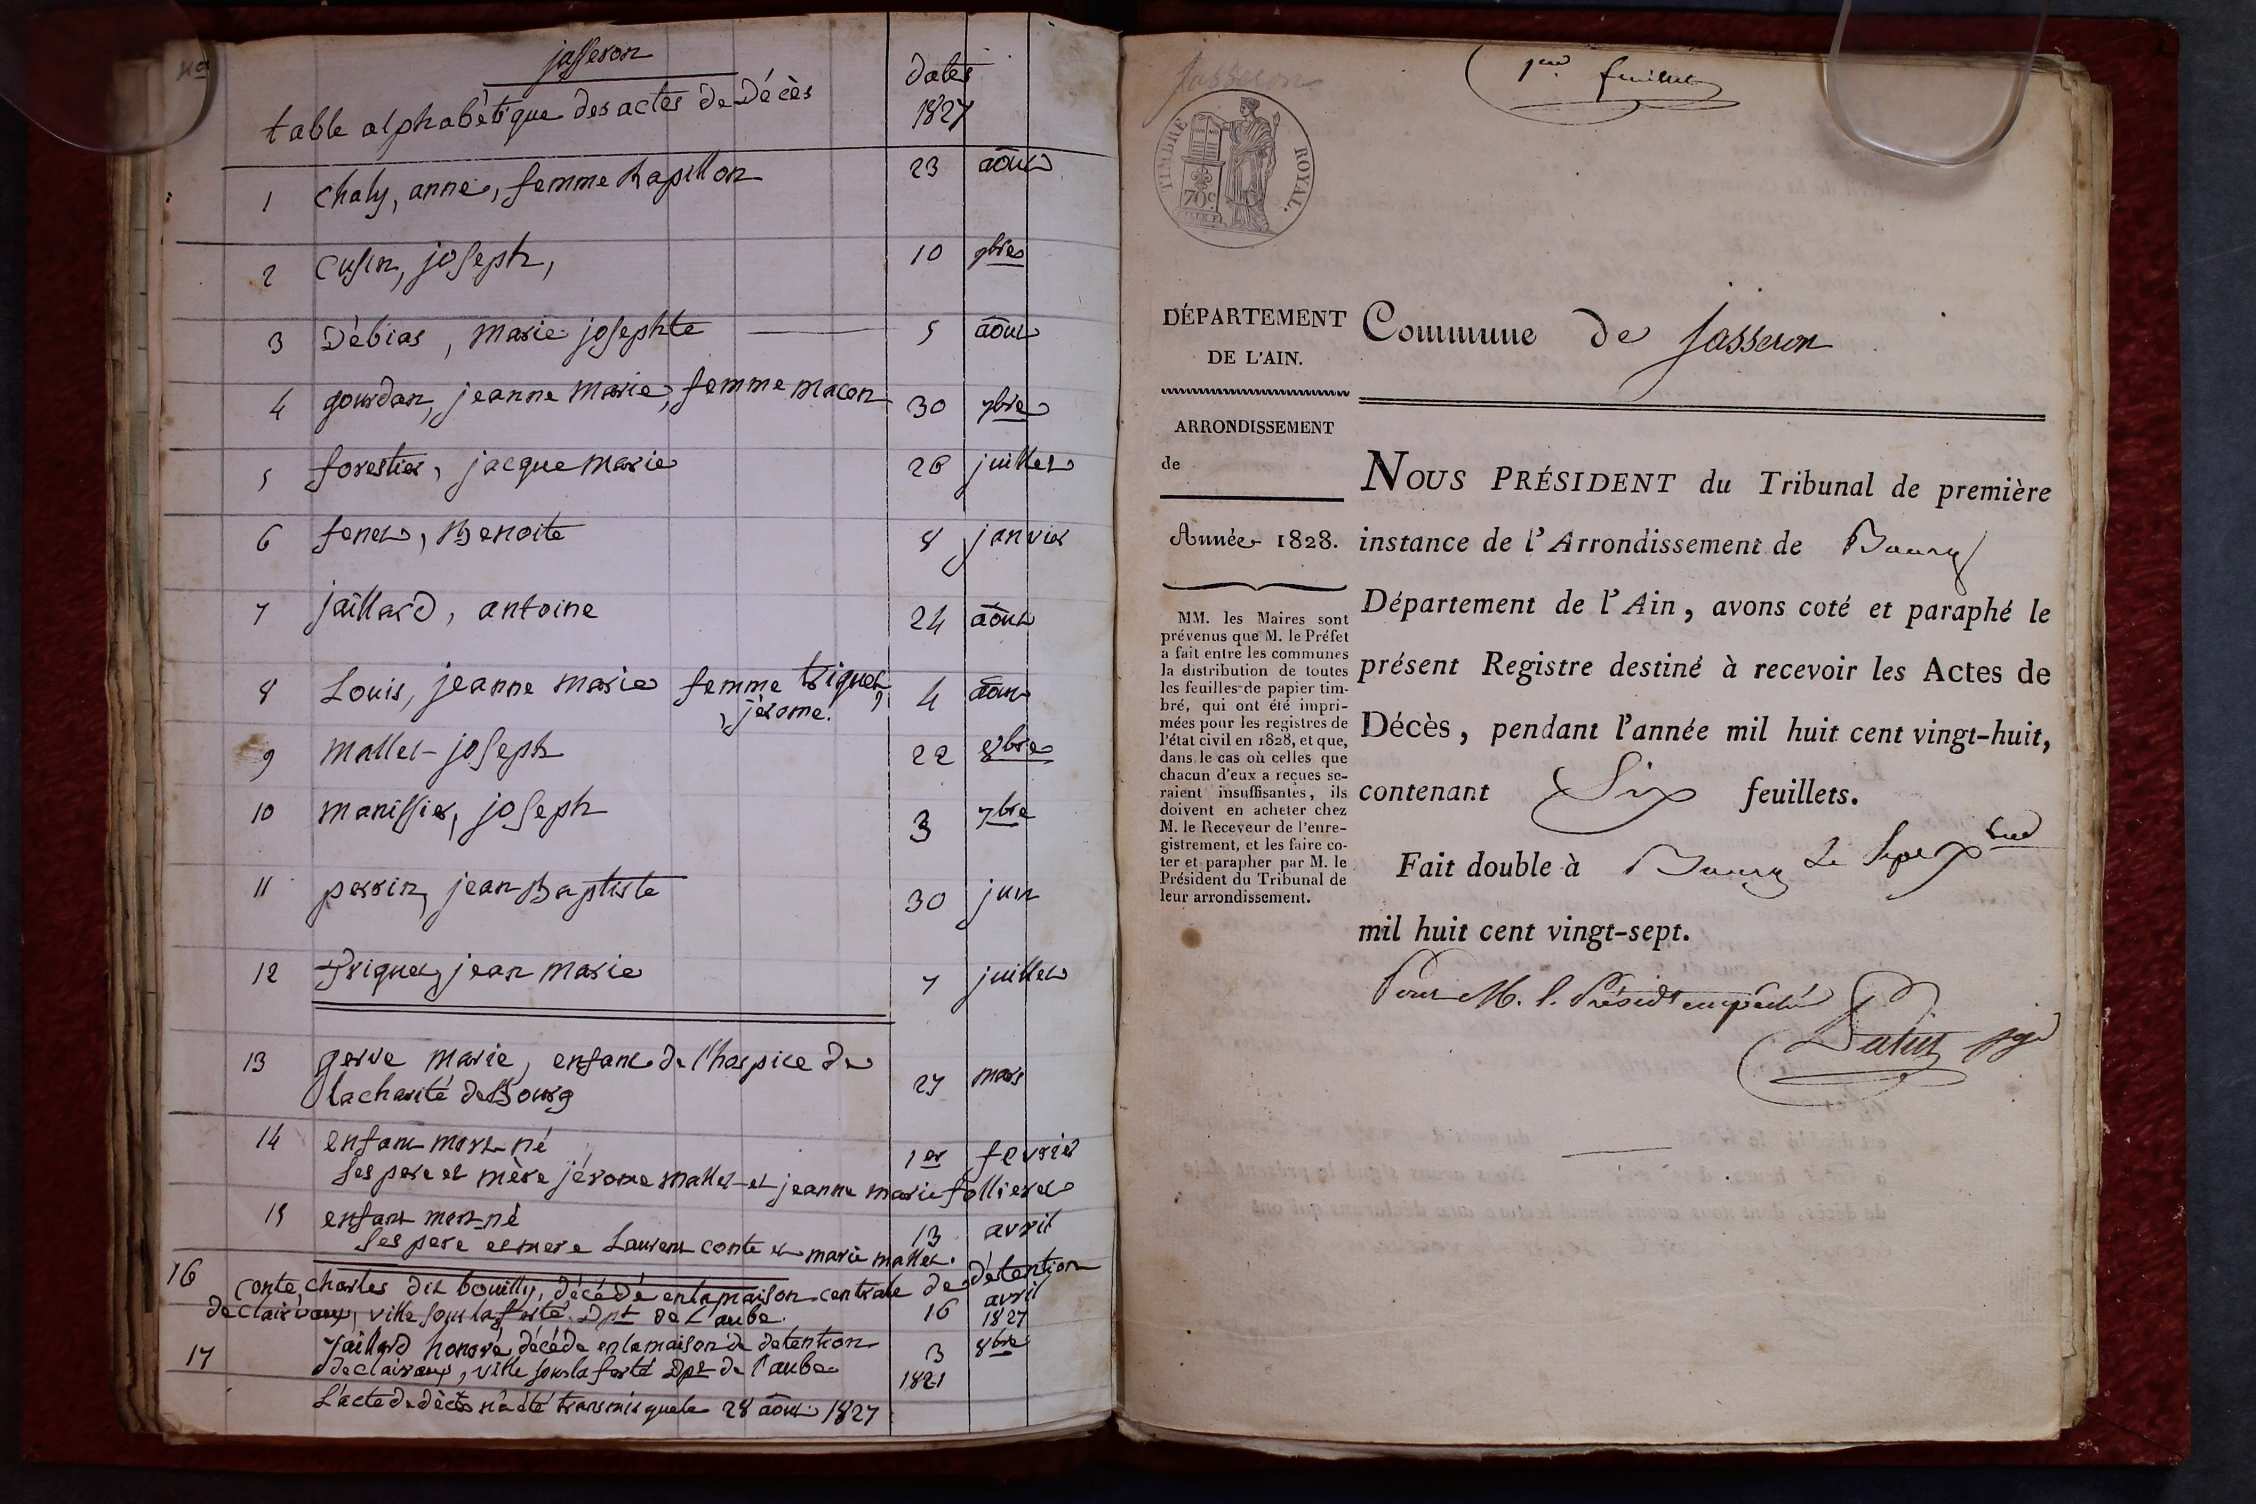 nos
jasseron
table alphabétique des actes de Décès
dates
1827
1 chaly, anne, femme Rapillon 23 aout
2 cusin, joseph, 10 9bre
3 Débias, marie josephte 5 aout
4 gourdan, jeanne marie, femme macon 30 7bre
5 forestier, jacque marie 26 juillet
6 fenet, Benoite 8 janvier
7 jaillard, antoine 24 aout
8 Louis, jeanne marie femme triquet, 4 aout
jérome.
9 mallet joseph 22 8bre
10 manissier, joseph 3 7bre
11 perrin, jean Baptiste 30 juin
12 triquet, jean marie 7 juillet
13 gerve marie, enfant de l'hospice de
la charité de Bourg 27 mars
14 enfant mort né 1er fevrier
ses pere et mère jérome mallet et jeanne marie follieret
15 enfant mort né 13 avril
ses pere et mere Laurent conte et marie mallet.
16 conte, charles dit bouilly, décédé en la maison centrale de détention
de clairvaux, ville sous la ferté Dpt de L'aube. 16 avril 1827
17 jaillard honoré décédé en la maison de detention 3 8bre
de clairvaux, ville sous la ferté Dpt de l'aube 1821
L'acte de décès n'a été transmis que le 28 aout 1827
Jasseron
1er feuillet
TIMBRE ROYAL.
70c.
DÉPARTEMENT
DE L'AIN.
Commune de Jasseron
ARRONDISSEMENT
de
Année 1828.
MM. les Maires sont
prévenus que M. le Préfet
a fait entre les communes
la distribution de toutes
les feuilles de papier tim-
bré, qui ont été impri-
mées pour les registres de
l'état civil en 1828, et que,
dans le cas où celles que
chacun d'eux a reçues se-
raient insuffisantes, ils
doivent en acheter chez
M. le Receveur de l'enre-
gistrement, et les faire co-
ter et parapher par M. le
Président du Tribunal de
leur arrondissement.
NOUS PRÉSIDENT du Tribunal de première
instance de l'Arrondissement de Bourg
Département de l'Ain, avons coté et paraphé le
présent Registre destiné à recevoir les Actes de
Décès, pendant l'année mil huit cent vingt-huit,
contenant Six feuillets.
Fait double à Bourg Le Sept Xbre
mil huit cent vingt-sept.
Pour M. l. Présidt empêché